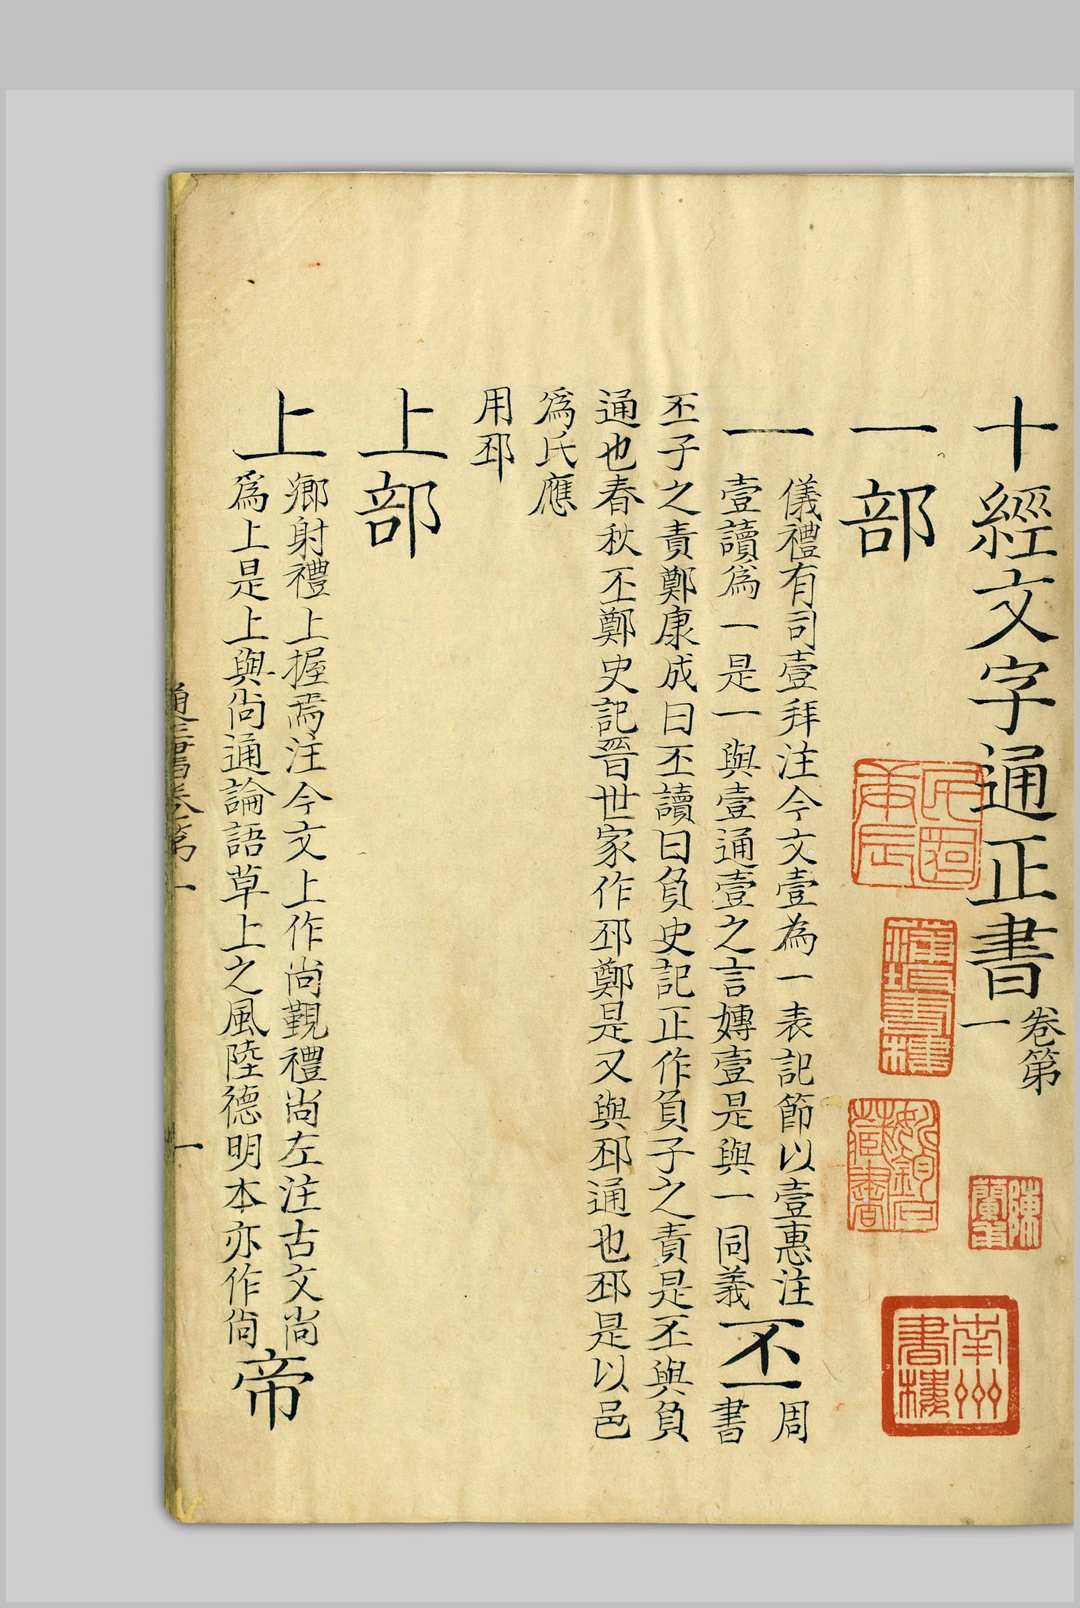 十經文字通正書卷第一
一部
一
儀禮有司壹拜注今文壹為一表記節以壹惠注
壹讀爲一是一與壹通壹之言嫥壹是與一同義
丕
周
書
丕子之責鄭康成曰丕讀曰負史記正作負子之責是丕與負
通也春秋丕鄭史記晉世家作邳鄭是又與邳通也邳是以邑
爲氏應
用邳
上部
上
鄉射禮上握焉注今文上作尚覲禮尚左注古文尚
爲上是上與尚通論語草上之風陸德明本亦作尚
帝
通正書卷第一
一
南州書樓